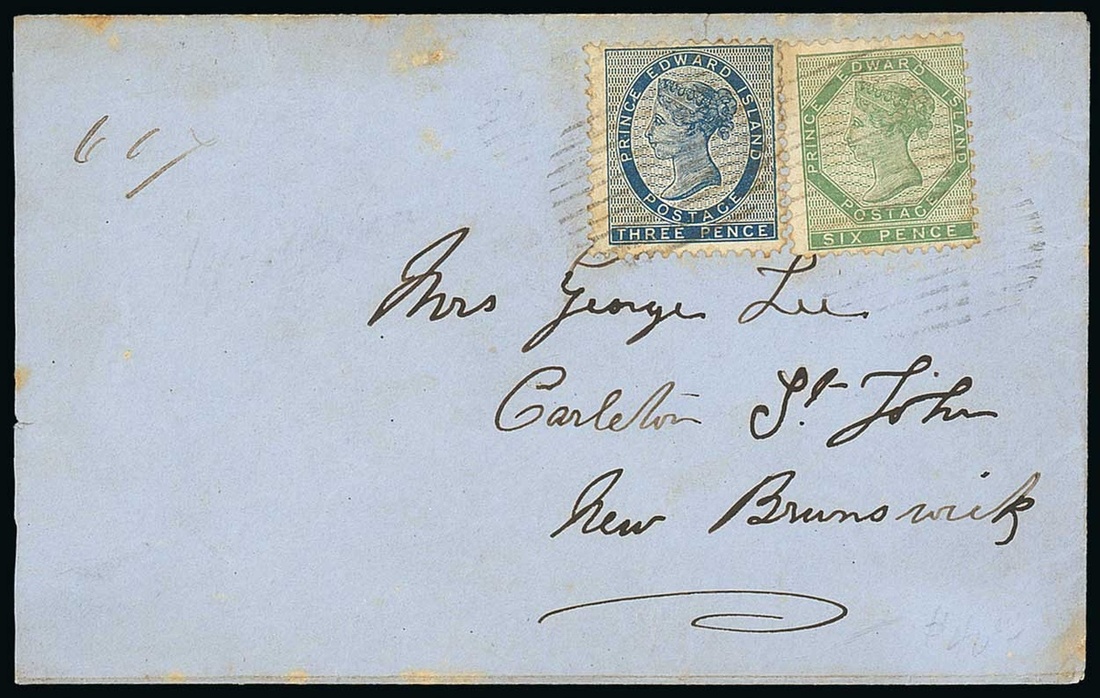 PRINCE EDWARD ISLAND
POSTAGE
THREE PENCE
PRINCE EDWARD ISLAND
POSTAGE
SIX PENCE
Mrs George Lee
Carleton St John
New Brunswick